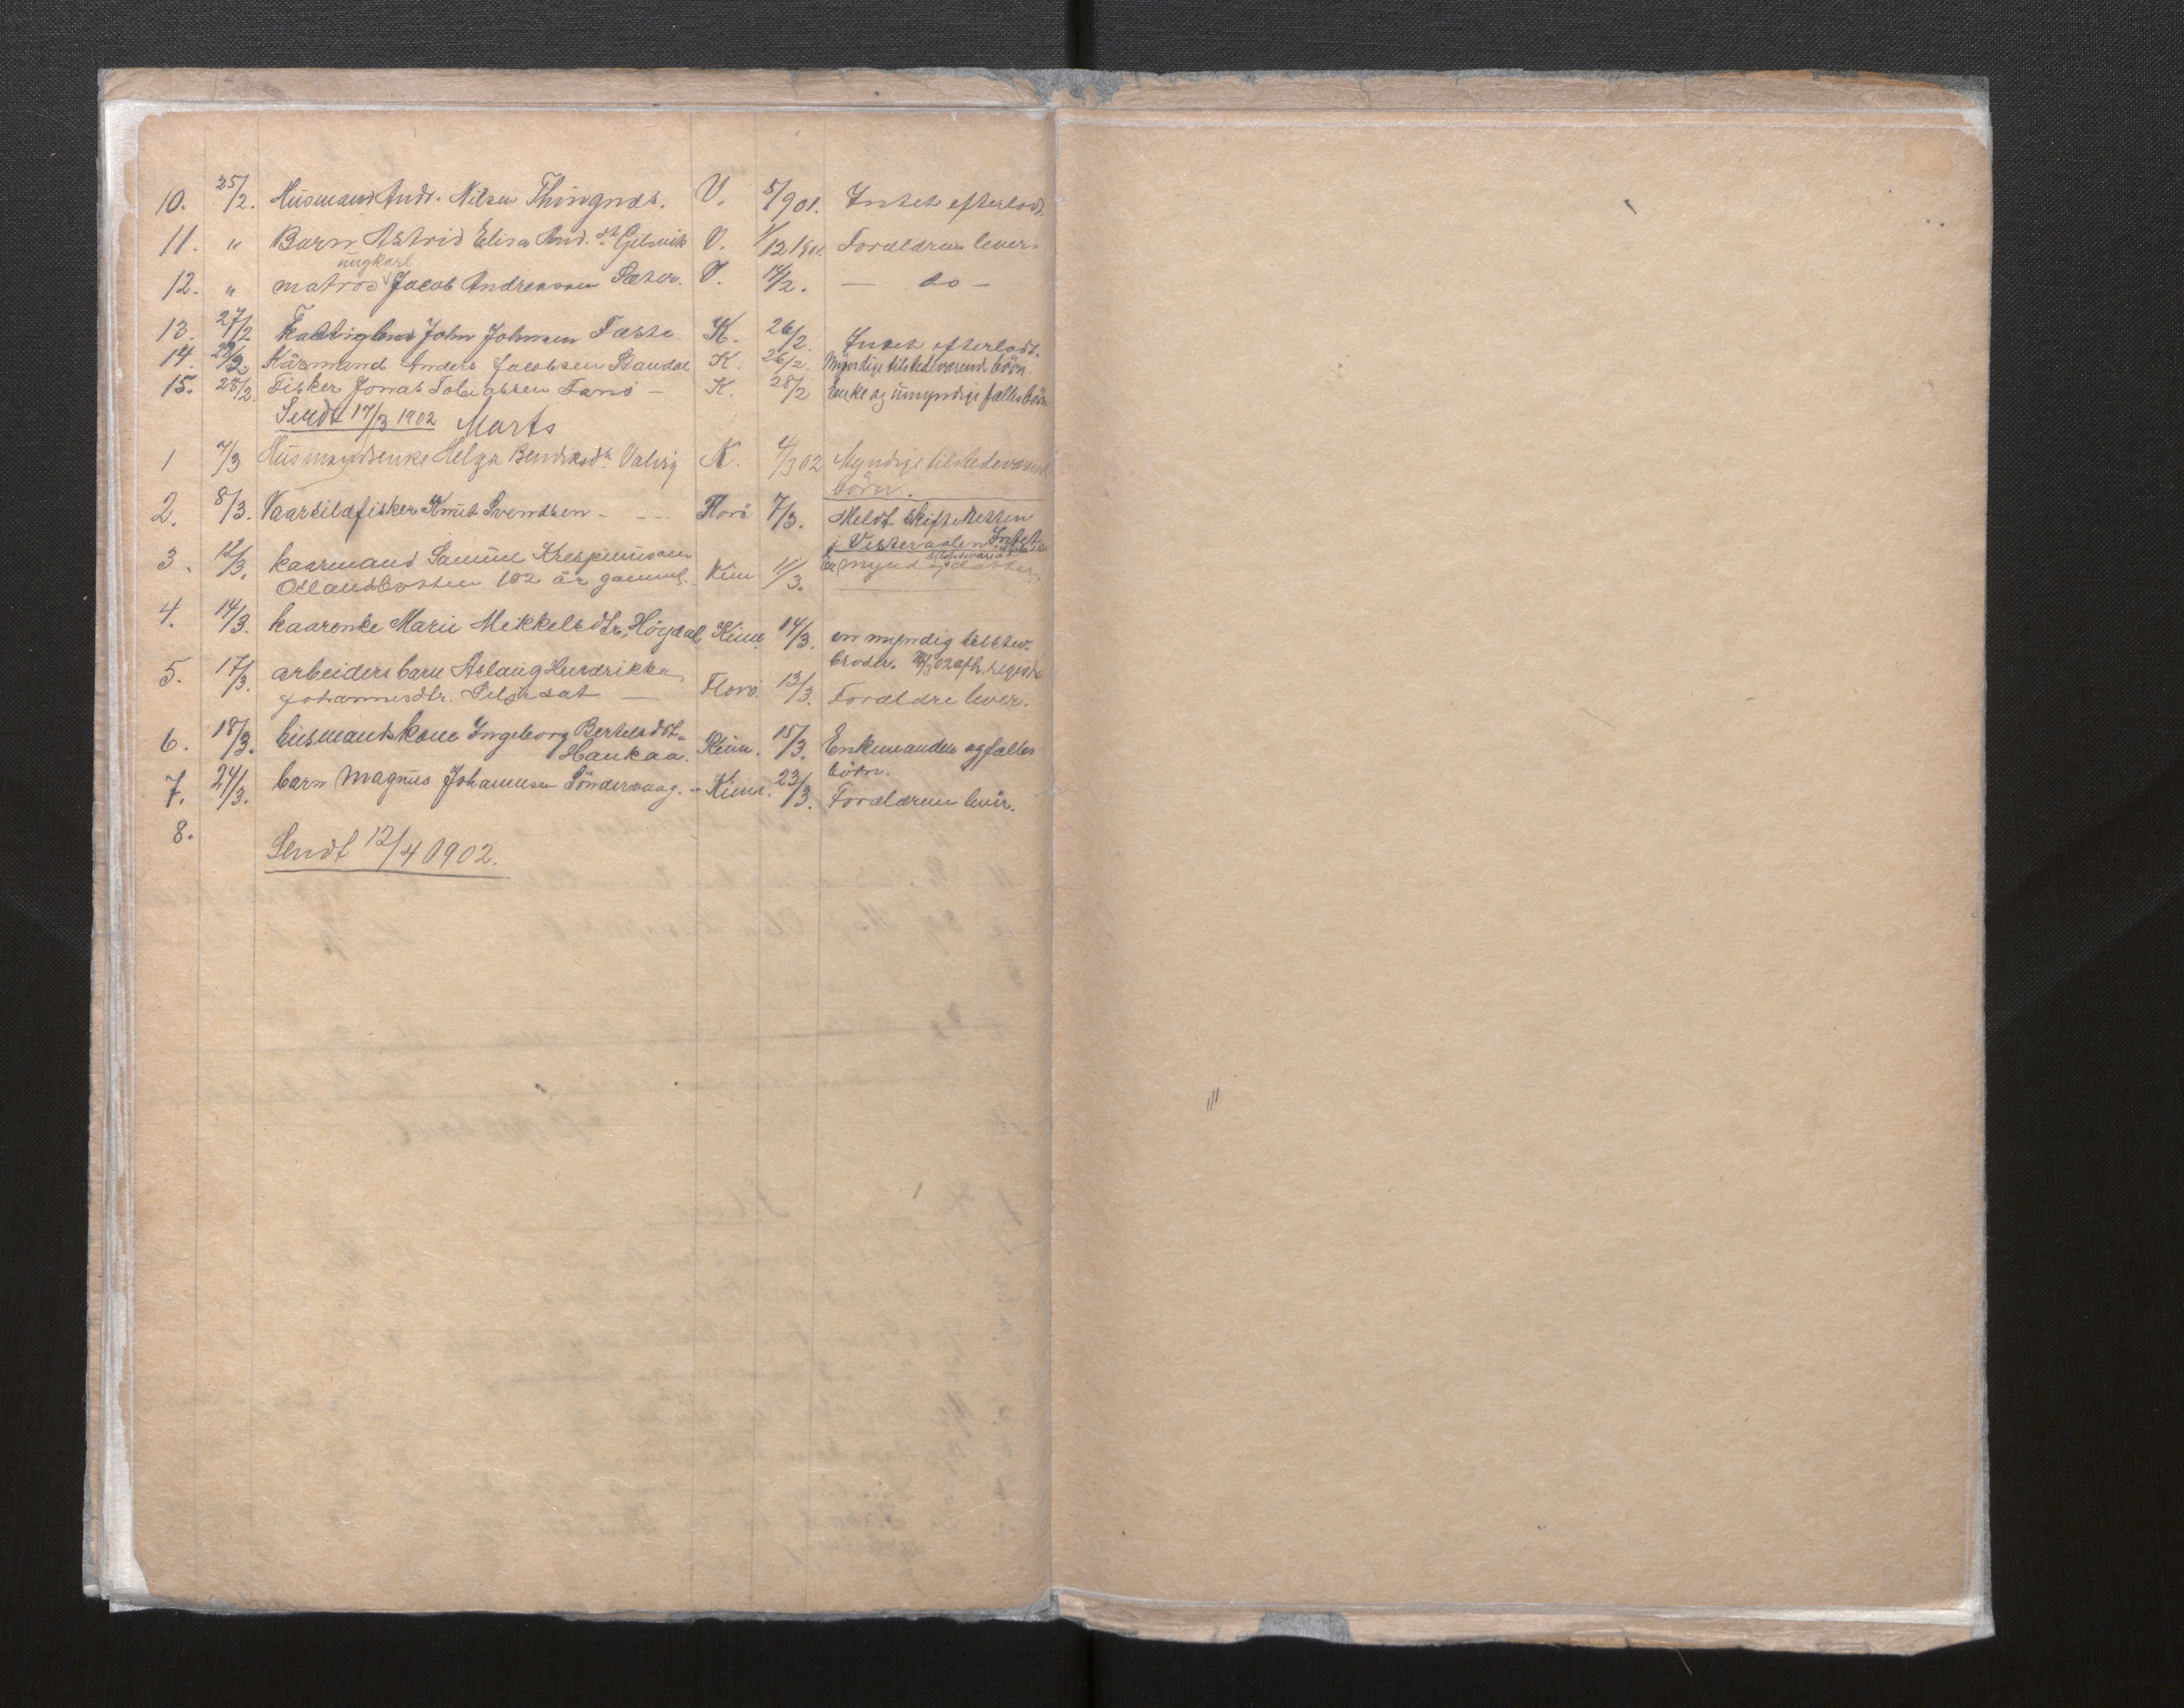 10. 25/2. Husmand Andr. Nilsen Thingnæs. V. 5/901. Intet efterladt.
11. " Barn Astrid Elisa And. dt. Gilsvik V. 1/12 1901. Forældrene lever.
ungkarl
12. " matros Jacob Andreassen Sæter. V. 14/2. — do —
13. 27/2 Fattiglem John Johnsen Fæste K. 26/2 Intet efterladt.
14. 28/2 Kårmand Anders Jacobsen K. 26/2. Myndige tilstedeværende börn.
15. 28/2. Fisker Jonas Tobiassen Fanö — K. 28/2 Enke og umyndige fælles börn
Sendt 17/3 1902 Marts
1 7/3 Husmandsenke Helga Bendiksdtr Valvig K. 4/3 02 Myndige tilstedeværende
börn.
2. 8/3. Vaarsildfisker Knut Svendsen - - - - Florö 7/3. Meldt skifteretten
i Vesteraalen Intet
3. 12/3. kaarmand Samuel Krespinussen
tilstedeværende
Osландsbotten 102 år gammel. Kinn 11/3. En myndig datter.
4. 14/3. kaarenke Marie Mekkelsdtr. Höydal Kinn. 14/3. en myndig tilstev.
broder.
5. 17/3. arbeidersbarn Aslaug Hendrikka
Johannesdtr. — Florö. 13/3. Forældre lever.
6. 18/3. husmandskone Ingeborg Bertelsdt.
Haukaa. Kinn. 15/3. Enkemanden og fælles
börn.
7. 24/3. barn Magnus Johannsen Söndervaag. - Kinn. 23/3. Forældrene lever.
8.
Sendt 12/4 1902.